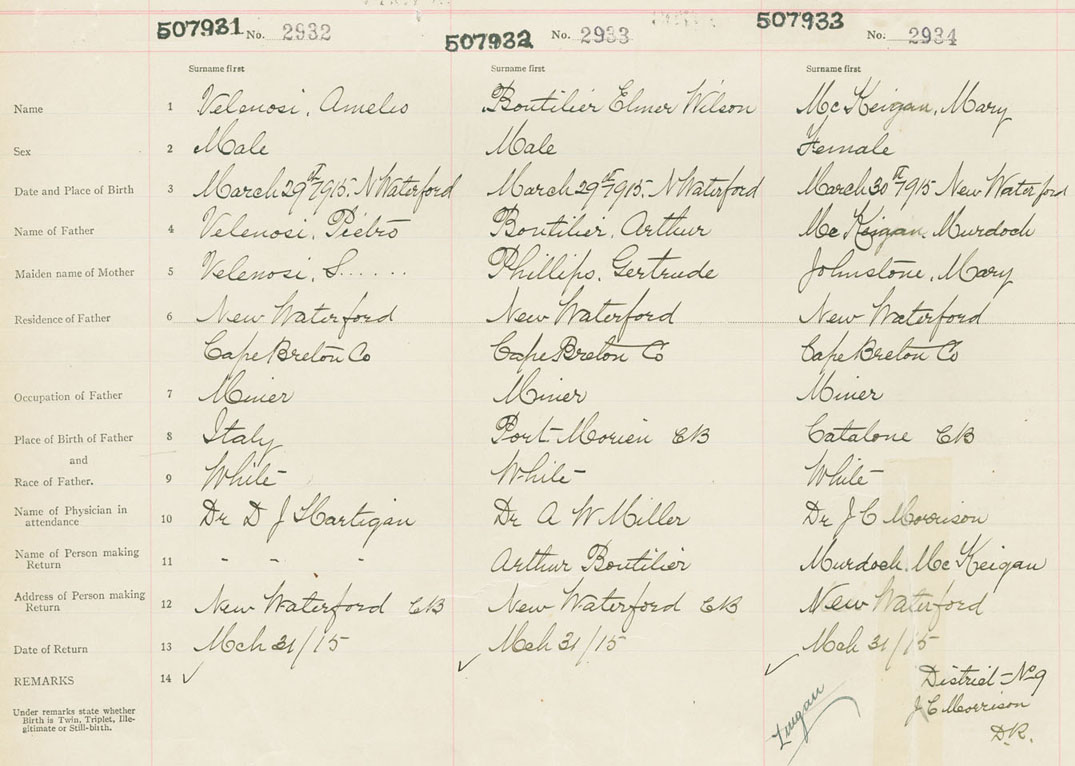 507931 No. 2932 507932 No. 2933 507933 No. 2934
Surname first Surname first Surname first
Name 1 Velenosi, Amelio Boutilier Elmer Wilson McKeigan, Mary
Sex 2 Male Male Female
Date and Place of Birth 3 March 29th 1915. N Waterford March 29th 1915. N Waterford March 30th 1915 New Waterford
Name of Father 4 Velenosi, Pietro Boutilier, Arthur McKeigan, Murdoch
Maiden name of Mother 5 Velenosi, S...... Phillips, Gertrude Johnstone, Mary
Residence of Father 6 New Waterford New Waterford New Waterford
Cape Breton Co Cape Breton Co Cape Breton Co
Occupation of Father 7 Miner Miner Miner
Place of Birth of Father 8 Italy Port Morien CB Catalone CB
and
Race of Father. 9 White White White
Name of Physician in
attendance 10 Dr D J Hartigan Dr A W Miller Dr J C Morrison
Name of Person making
Return 11 - - - Arthur Boutilier Murdoch McKeigan
Address of Person making
Return 12 New Waterford CB New Waterford CB New Waterford
Date of Return 13 Mch 31/15 Mch 31/15 Mch 31/15
REMARKS 14 ✓ ✓ ✓ District No 9
Under remarks state whether
Birth is Twin, Triplet, Ille-
gitimate or Still-birth.
J C Morrison
D.R.
Lingan